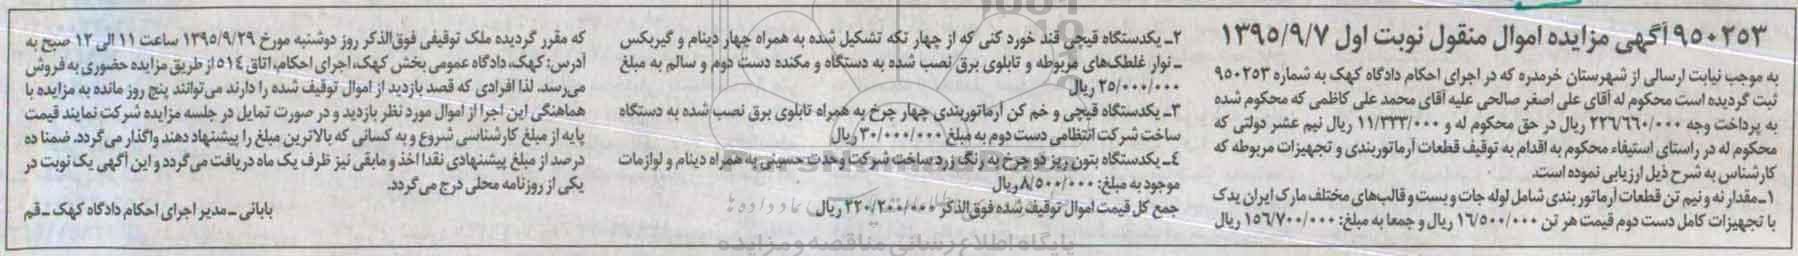 ۹۵۰۲۵۳ آگهی مزایده اموال منقول نوبت اول ۱۳۹۵/۹/۷
به موجب نیابت ارسالی از شهرستان خرمدره که در اجرای احکام دادگاه کهک به شماره ۹۵۰۲۵۳
ثبت گردیده است محکوم له آقای علی اصغر صالحی علیه آقای محمد علی کاظمی که محکوم شده
به پرداخت وجه ۲۲۶/۶۶۰/۰۰۰ ریال در حق محکوم له و ۱۱/۳۳۳/۰۰۰ ریال نیم عشر دولتی که
محکوم له در راستای استیفاء محکوم به اقدام به توقیف قطعات آرماتوربندی و تجهیزات مربوطه که
کارشناس به شرح ذیل ارزیابی نموده است.
۱ـ مقدار نه و نیم تن قطعات آرماتور بندی شامل لوله جات و بست و قالب‌های مختلف مارک ایران یدک
با تجهیزات کامل دست دوم قیمت هر تن ۱۶/۵۰۰/۰۰۰ ریال و جمعا به مبلغ: ۱۵۶/۷۰۰/۰۰۰ ریال
۲ـ یکدستگاه قیچی قند خورد کنی که از چهار تکه تشکیل شده به همراه چهار دینام و گیربکس
ـ نوار غلطک‌های مربوطه و تابلوی برق نصب شده به دستگاه و مکنده دست دوم و سالم به مبلغ
۲۵/۰۰۰/۰۰۰ ریال
۳ـ یکدستگاه قیچی و خم کن آرماتوربندی چهار چرخ به همراه تابلوی برق نصب شده به دستگاه
ساخت شرکت انتظامی دست دوم به مبلغ ۳۰/۰۰۰/۰۰۰ ریال
٤ـ یکدستگاه بتون ریز دو چرخ به رنگ زرد ساخت شرکت وحدت حسینی به همراه دینام و لوازمات
موجود به مبلغ: ۸/۵۰۰/۰۰۰ ریال
جمع کل قیمت اموال توقیف شده فوق‌الذکر ۲۲۰/۲۰۰/۰۰۰ ریال
که مقرر گردیده ملک توقیفی فوق‌الذکر روز دوشنبه مورخ ۱۳۹۵/۹/۲۹ ساعت ۱۱ الی ۱۲ صبح به
آدرس: کهک، دادگاه عمومی بخش کهک، اجرای احکام، اتاق ٥١٤ از طریق مزایده حضوری به فروش
می‌رسد. لذا افرادی که قصد بازدید از اموال توقیف شده را دارند می‌توانند پنج روز مانده به مزایده با
هماهنگی این اجرا از اموال مورد نظر بازدید و در صورت تمایل در جلسه مزایده شرکت نمایند قیمت
پایه از مبلغ کارشناسی شروع و به کسانی که بالاترین مبلغ را پیشنهاد دهند واگذار می‌گردد. ضمنا ده
درصد از مبلغ پیشنهادی نقدا اخذ و مابقی نیز ظرف یک ماه دریافت می‌گردد و این آگهی یک نوبت در
یکی از روزنامه محلی درج می‌گردد.
بابائی ـ مدیر اجرای احکام دادگاه کهک ـ قم
پایگاه اطلاع رسانی مناقصه و مزایده